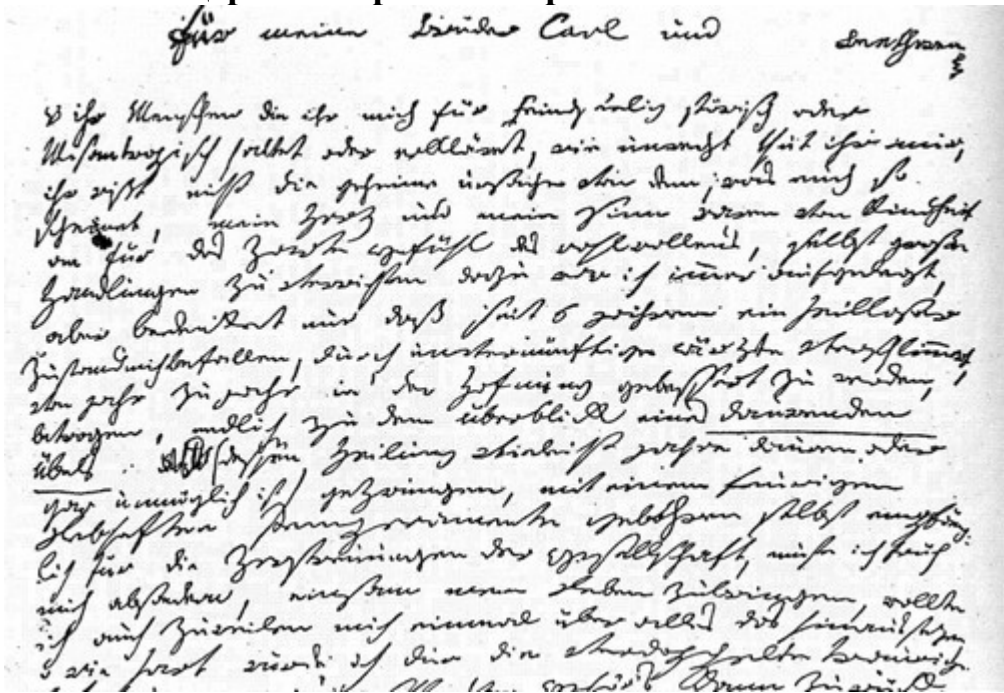 für meine Brüder Carl und Beethoven
o ihr Menschen die ihr mich für feindseelig störisch oder
Misantropisch haltet oder erkläret, wie unrecht thut ihr mir,
ihr wißt nicht die geheime ursache von dem, was euch so
scheinet, mein Herz und mein Sinn waren von Kindheit
an für das Zarte gefühl des wohlwollens, selbst große
Handlungen zu verrichten dazu war ich immer aufgelegt,
aber bedenket nur daß seit 6 jahren ein heilloser
Zustand mich befallen, durch unvernünftige ärzte verschlimmert,
von jahr zu jahr in der Hofnung gebessert zu werden,
betrogen, endlich zu dem überblick eines daurenden
Übels (dessen Heilung vieleicht jahre dauren oder
gar unmöglich ist) gezwungen, mit einem feurigen
Lebhaften Temperamente gebohren selbst empfäng-
lich für die Zerstreuungen der gesellschaft, muste ich früh
mich absondern, einsam mein Leben zubringen, wollte
ich auch zuweilen mich einmal über alles das hinaussezen
o wie hart wurde ich dur die verdoppelte traurige